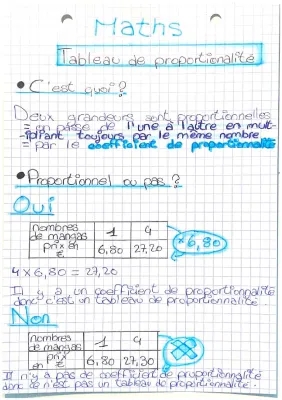 Maths
Tableau de proportionalité
• C'est quoi ?
Deux grandeurs sont proportionnelles
= on passe de l'une à l'autre en mult-
ipliant toujours par le même nombre
= par le coefficient de proportionnalité
• Proportionnel ou pas ?
Oui
nombres de mangas 1 4
Prix en € 6,80 27,20
×6,80
4×6,80 = 27,20
Il y a un coefficient de proportionnalité
donc c'est un tableau de proportionnalité
Non
nombres de mangas 1 4
Prix en € 6,80 27,30
Il n'y a pas de coefficient de proportionnalité
donc ce n'est pas un tableau de proportionnalité.